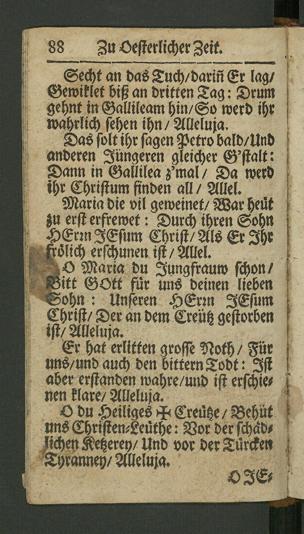 88 Zu Oesterlicher Zeit.
Secht an das Tuch/ dariñ Er lag/
Gewiklet biß an dritten Tag: Drum
gehnt in Gallileam hin/ So werd ihr
wahrlich sehen ihn/ Alleluja.
Das solt ihr sagen Petro bald/ Und
anderen Jüngeren gleicher G'stalt:
Dann in Gallilea z'mal/ Da werd
ihr Christum finden all/ Allel.
Maria die vil geweinet/ War heüt
zu erst erfrewet: Durch ihren Sohn
HErrn JEsum Christ/ Als Er Ihr
frölich erschunen ist/ Allel.
O Maria du Jungfrauw schon/
Bitt GOtt für uns deinen lieben
Sohn: Unseren HErrn JEsum
Christ/ Der an dem Creütz gestorben
ist/ Alleluja.
Er hat erlitten grosse Noth/ Für
uns/ und auch den bittern Todt: Ist
aber erstanden wahre/ und ist erschie-
nen klare/ Alleluja.
O du Heiliges ✠ Creütze/ Behüt
uns Christen-Leüthe: Vor der schäd-
lichen Ketzerey/ Und vor der Türcken
Tyranney/ Alleluja.
O JE-